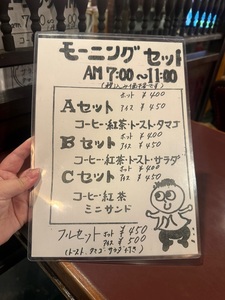 モーニングセット
AM 7:00～11:00
ホット ¥400
Aセット アイス ¥450
コーヒー・紅茶・トースト・タマゴ
ホット ¥400
Bセット アイス ¥450
コーヒー・紅茶・トースト・サラダ
ホット ¥400
Cセット アイス ¥450
コーヒー・紅茶
ミニサンド
フルセット ホット ¥450
アイス ¥500
(トースト、タマゴ・サラダ付き)